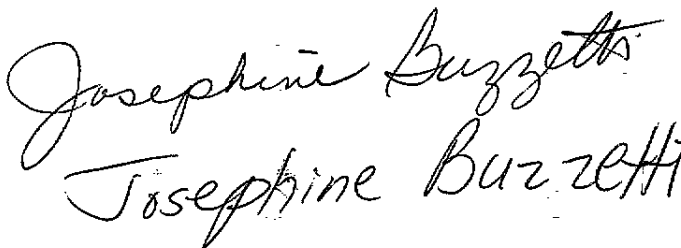 Josephine Buzzetti
Josephine Buzzetti